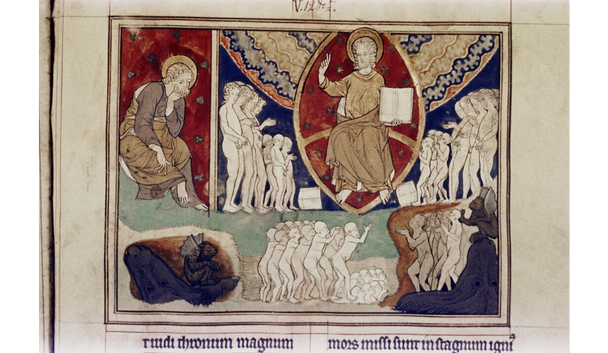 vidi thronum magnum
mors missi sunt in stagnum igni